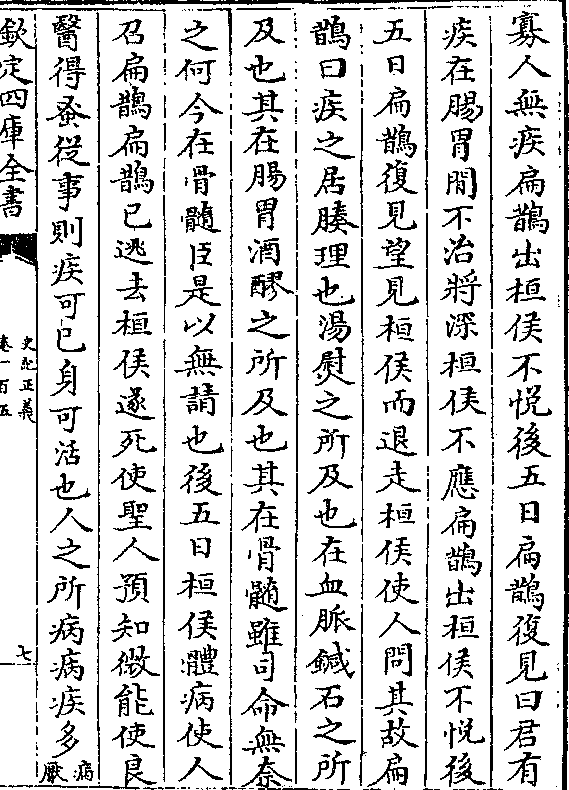 寡人無疾扁鵲出桓侯不悅後五日扁鵲復見曰君有
疾在腸胃間不治將深桓侯不應扁鵲出桓侯不悅後
五日扁鵲復見望見桓侯而退走桓侯使人問其故扁
鵲曰疾之居腠理也湯熨之所及也在血脈鍼石之所
及也其在腸胃酒醪之所及也其在骨髓雖司命無奈
之何今在骨髓臣是以無請也後五日桓侯體病使人
召扁鵲扁鵲已逃去桓侯遂死使聖人預知微能使良
醫得蚤從事則疾可已身可活也人之所病病疾多病
厭
欽定四庫全書
史記正義
卷一百五
七